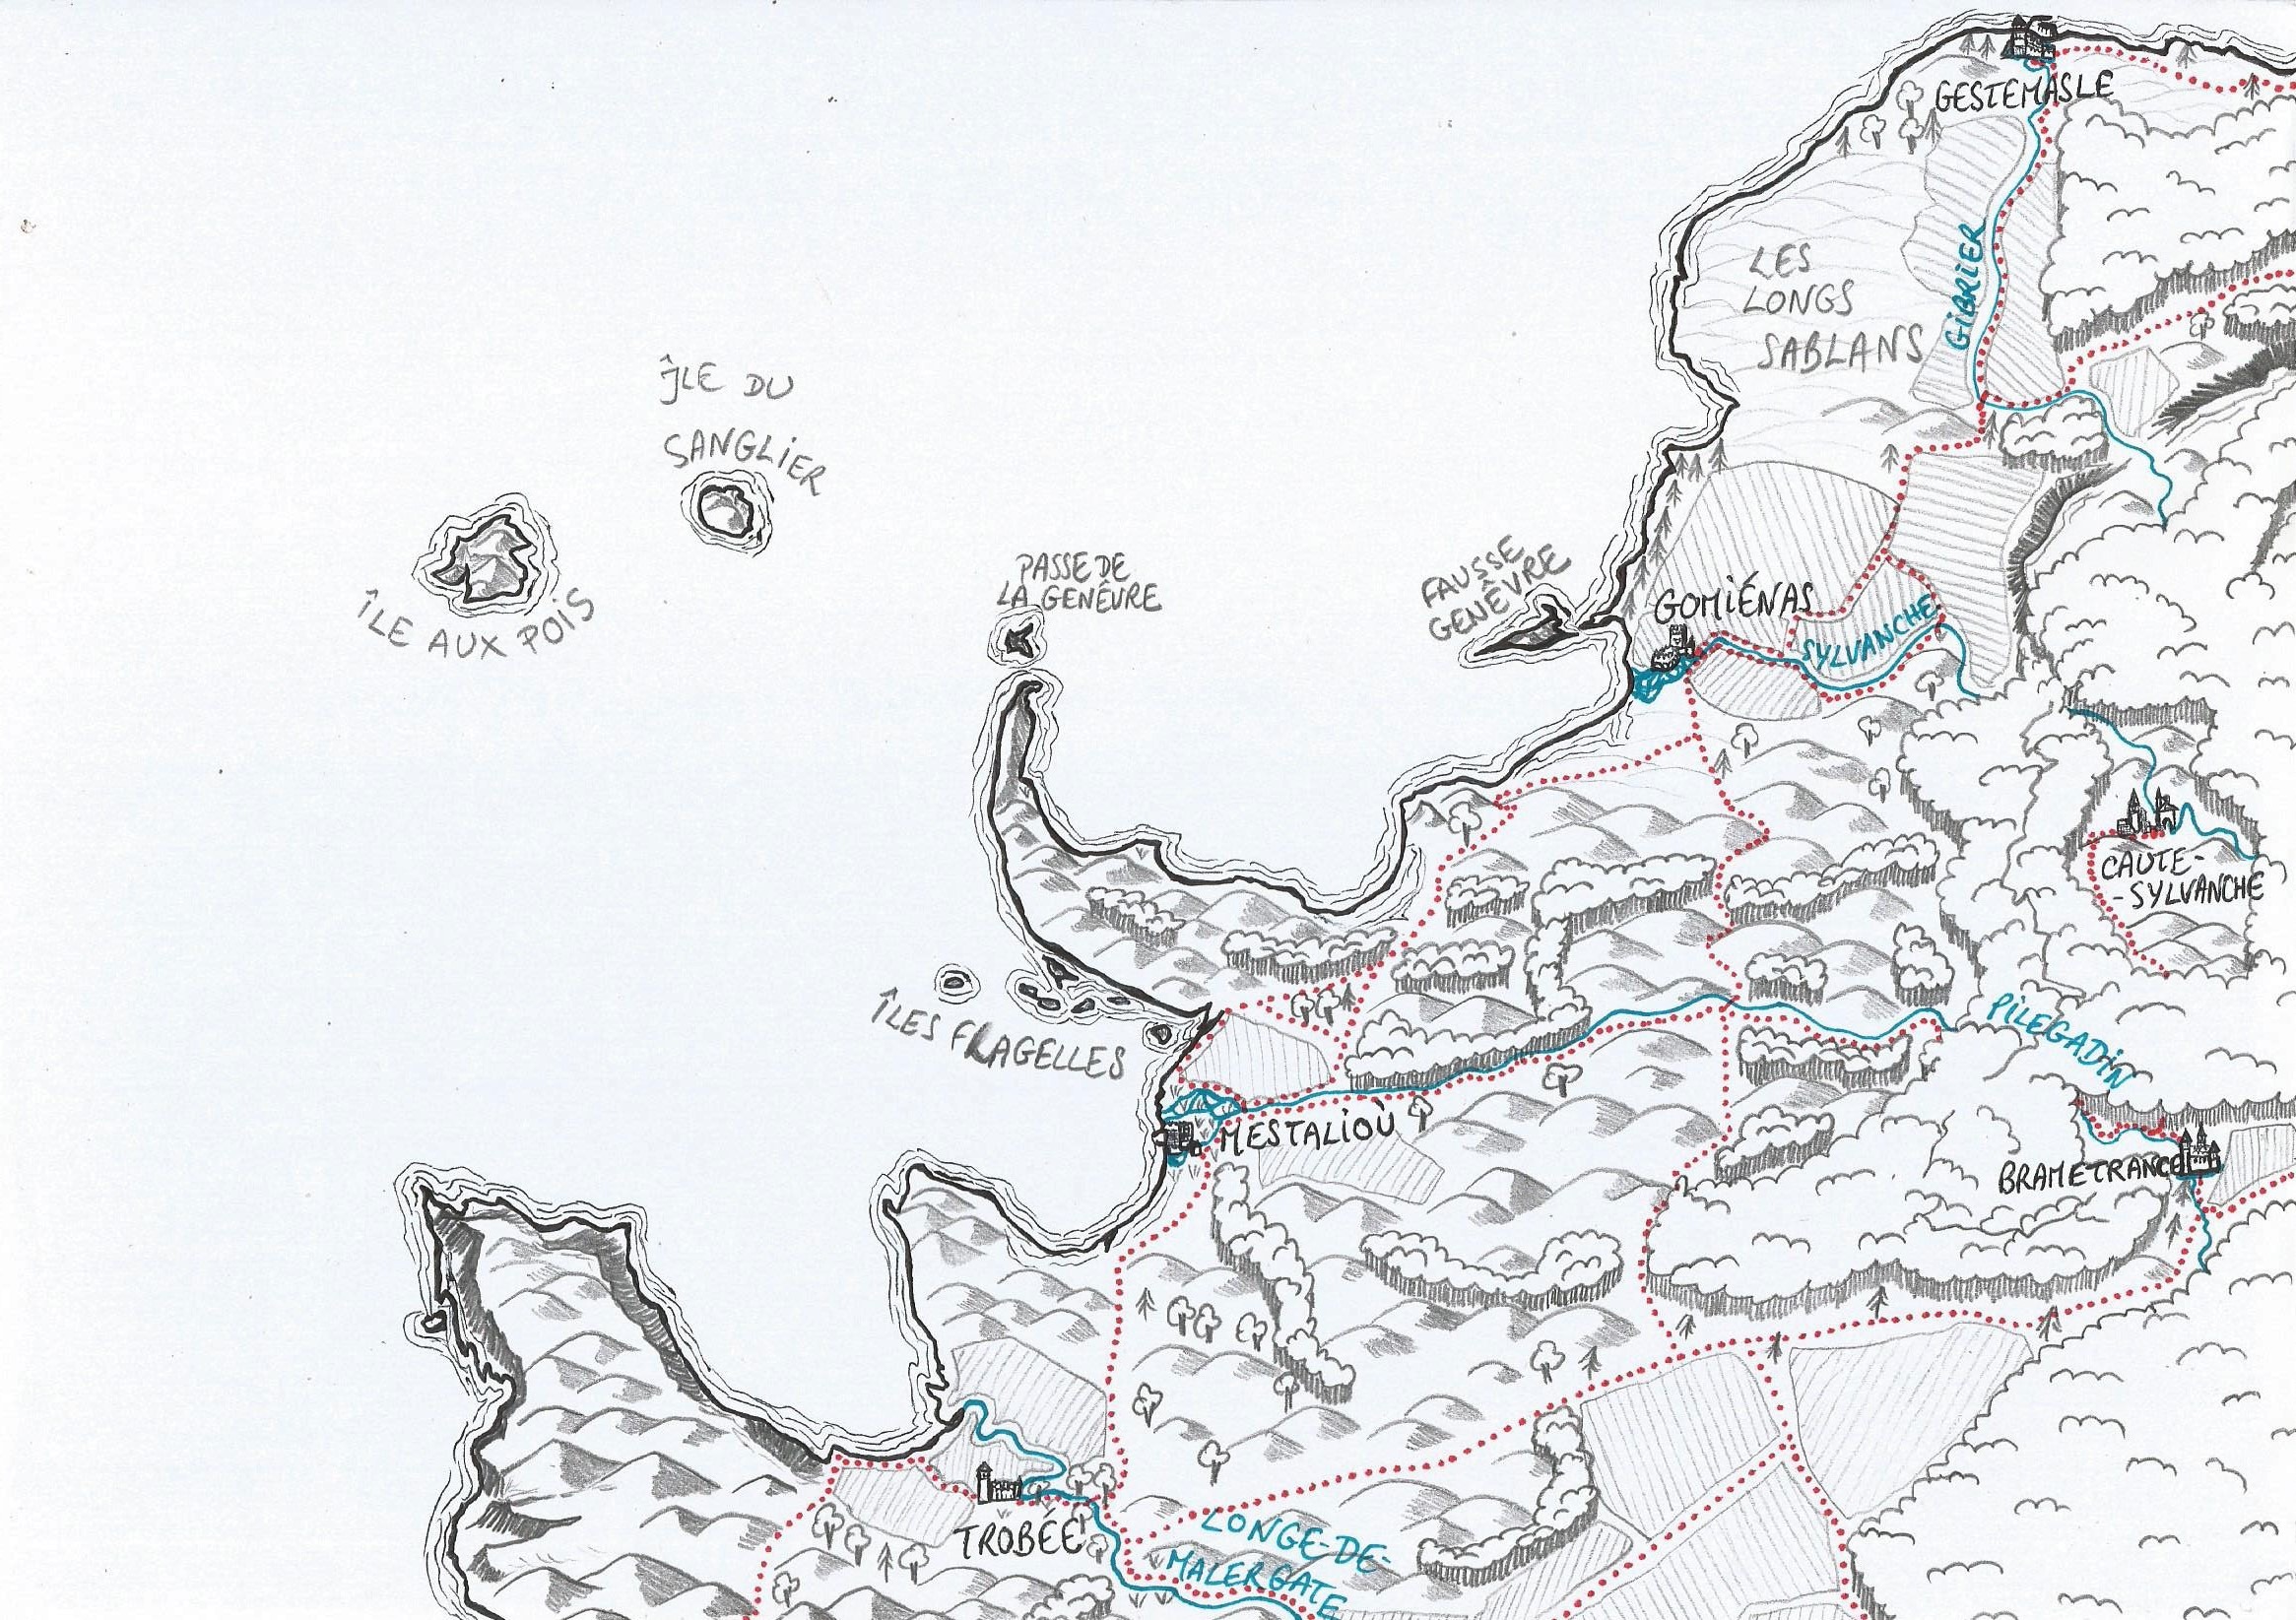 GESTEMASLE
GIBRIER
LES
LONGS
SABLANS
ÎLE DU
SANGLIER
ÎLE AUX POIS
PASSE DE
LA GENÊVRE
FAUSSE
GENÊVRE
GOMIÉNAS
SYLVANCHE
CAUTE-
-SYLVANCHE
ÎLES FLAGELLES
PILEGADIN
MESTALIOÙ
BRAMETRANCE
TROBÉE
LONGE-DE-
MALERGATE